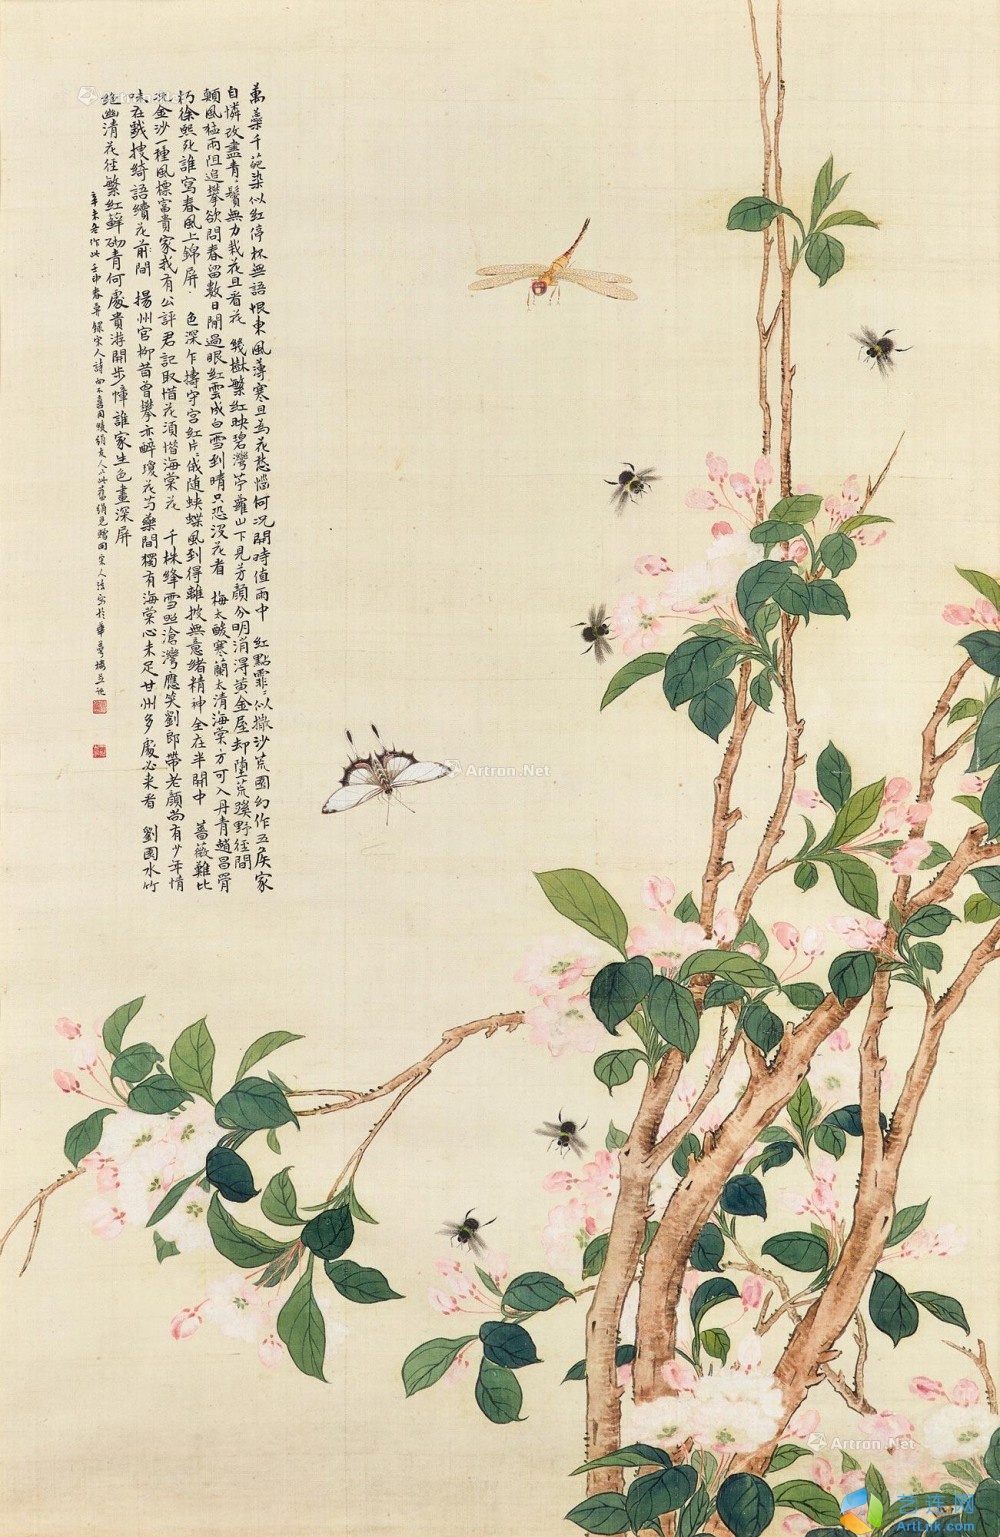 萬蘂千葩染似紅停杯無語恨東風薄寒且為花愁惱何況開時值雨中 紅點霏霏似撒沙荒園幻作五侯家
自憐改盡青青鬢無力栽花且看花 幾樹繁紅映碧灣苧蘿山下見芳顏分明消得黃金屋却墮荒蹊野徑間
顛風極雨阻追攀欲問春留數日閒過眼紅雲成白雪到晴只恐沒花看 梅太酸寒蘭太清海棠方可入丹青趙昌骨
朽徐熙死誰寫春風上錦屏 色深乍擣守宮紅片片俄隨蛺蝶風到得離披無意緒精神全在半開中 薔薇難比
況金沙一種風標富貴家我有公評君記取惜花須惜海棠花 千株絳雪照滄灣應笑劉郎帶老顏尚有少年情
味在戲搜綺語續花前間 揚州官柳昔曾攀亦醉瓊花芍藥間獨有海棠心未足廿州多處必來看 劉園水竹
絕幽清花徑繁紅蘚砌青何處貴游開步幛誰家生色畫深屏
辛未冬作此壬申春尋錄宋人詩
Artron.Net
Artron.Net
艺连网
ArtLnk.com